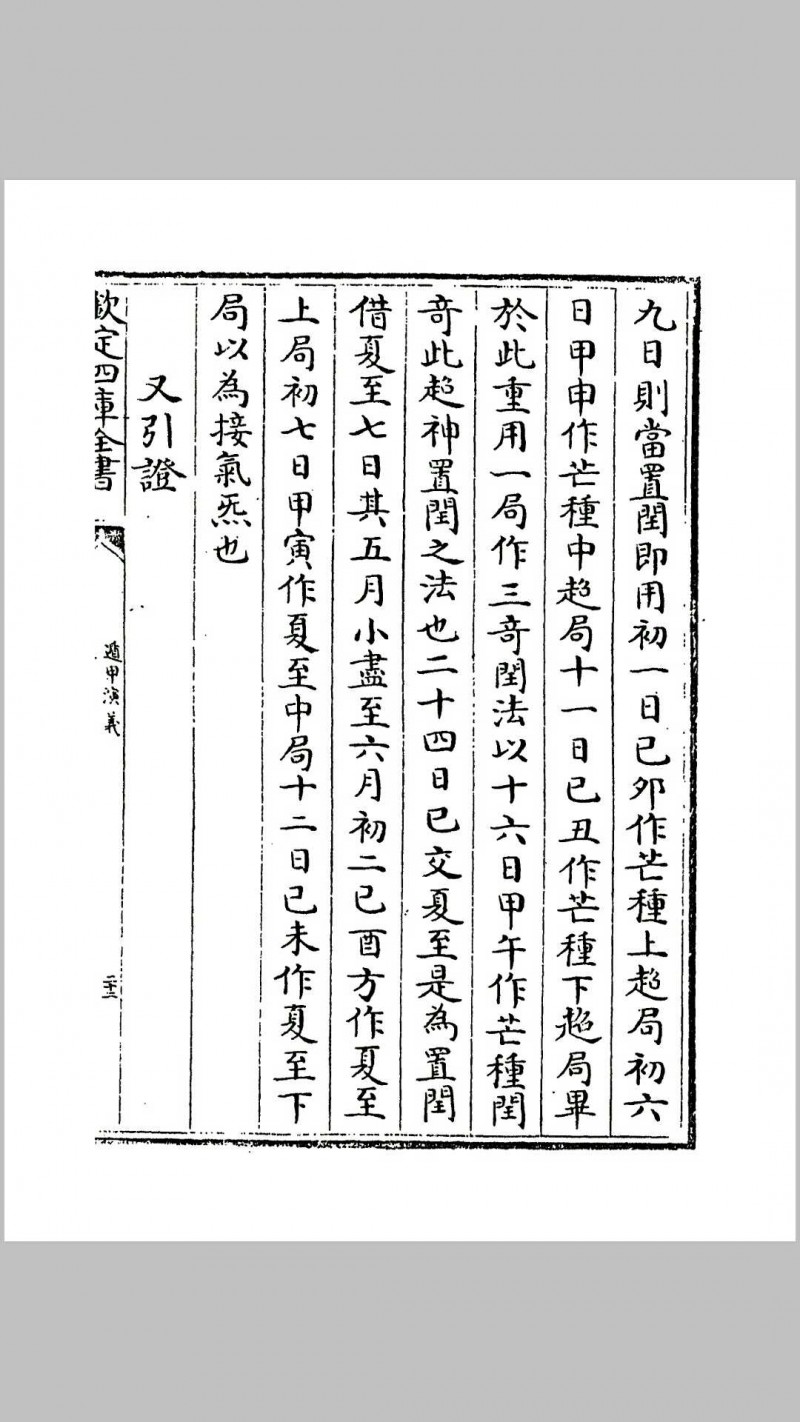 九日則當置閏即用初一日已夘作芒種上超局初六
日甲申作芒種中超局十一日已丑作芒種下超局畢
於此重用一局作三奇閏法以十六日甲午作芒種閏
奇此超神置閏之法也二十四日已交夏至是為置閏
借夏至七日其五月小盡至六月初二已酉方作夏至
上局初七日甲寅作夏至中局十二日已未作夏至下
局以為接氣炁也
又引證
欽定四庫全書
遁甲演義
二十三